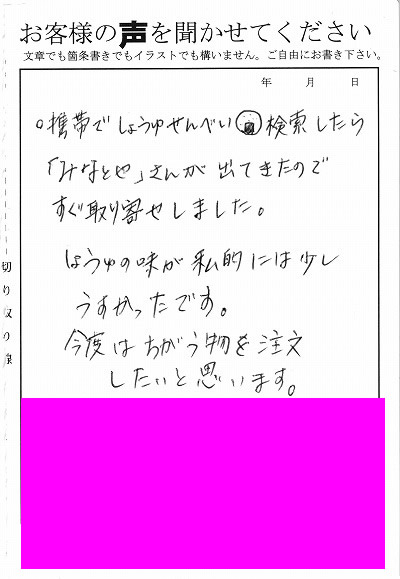 お客様の声を聞かせてください
文章でも箇条書きでもイラストでも構いません。ご自由にお書き下さい。
年 月 日
○携帯でしょうゆせんべい検索したら
「みなとや」さんが出てきたので
すぐ取り寄せしました。
しょうゆの味が私的には少し
うすかったです。
今度はちがう物を注文
したいと思います。
切り取り線